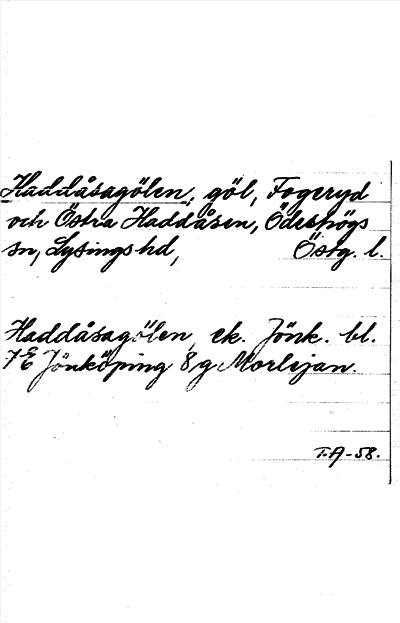 Haddåsagölen, göl, Fogeryd
och Östra Haddåsen, Ödeshögs
sn, Lysings hd, Östg. l.
Haddåsagölen, ek. Jönk. bl.
7E Jönköping 8g Morlejan.
T.A-58.